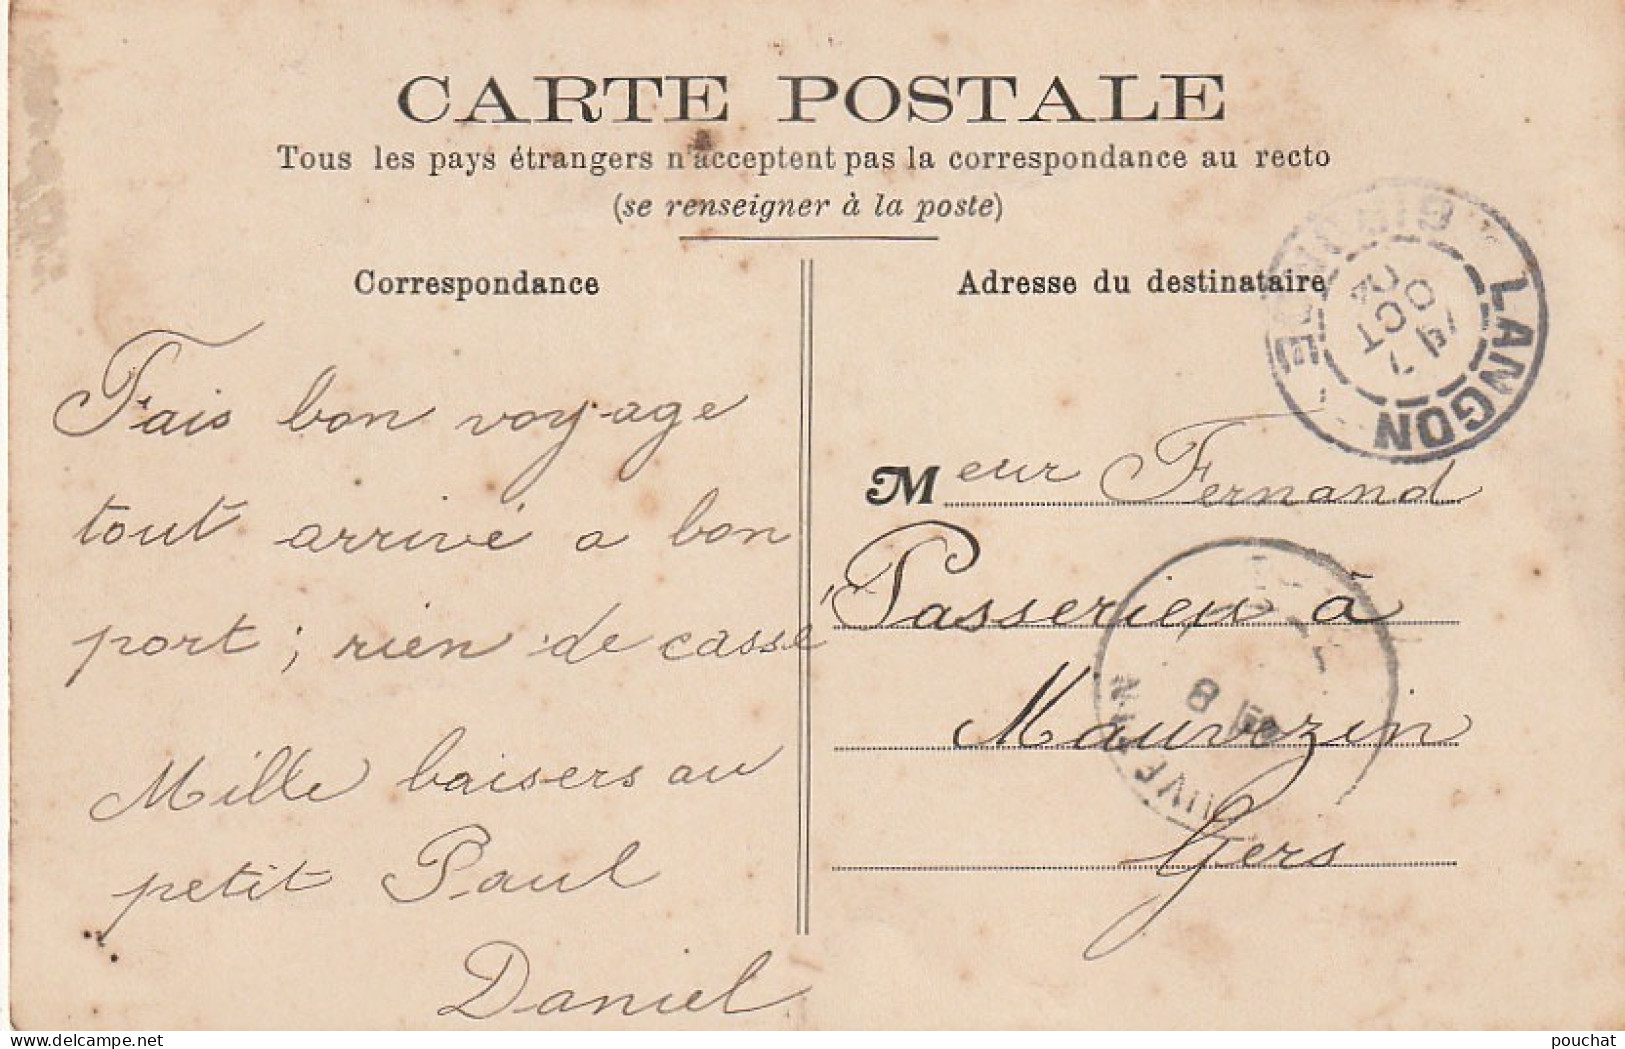 CARTE POSTALE
Tous les pays étrangers n'acceptent pas la correspondance au recto
(se renseigner à la poste)
Correspondance
Fais bon voyage
tout arrivé a bon
port ; rien de cassé
Mille baisers au
petit Paul
Daniel
Adresse du destinataire
LANGON
GIRONDE
7
OCT
04
Meur Fernand
Passerieu à
Mauvezin
Gers
8
delcampe.net
pouchat